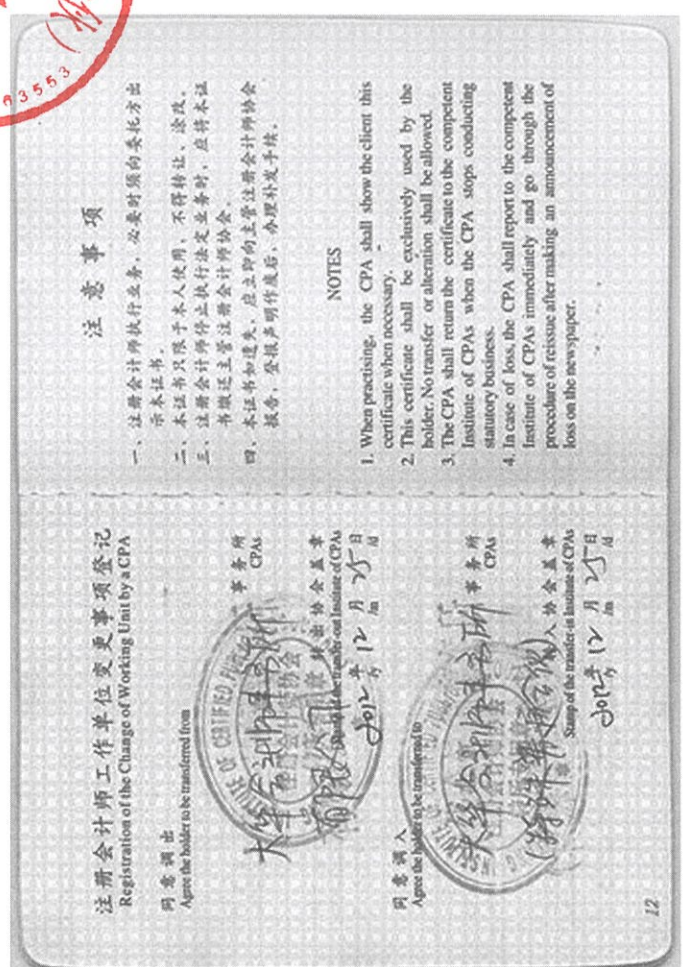 注册会计师工作单位变更事项登记
Registration of the Change of Working Unit by a CPA
同意调出
Agree the holder to be transferred from
大华会计师事务所
有限公司
事务所
CPAs
转出协会盖章
Stamp of the transfer-out Institute of CPAs
2012年12月25日
/y /m /d
同意调入
Agree the holder to be transferred to
大华会计师事务所
(特殊普通合伙)
事务所
CPAs
转入协会盖章
Stamp of the transfer-in Institute of CPAs
2012年12月25日
/y /m /d
INSTITUTE OF CERTIFIED PUBLIC
12
注意事项
一、注册会计师执行业务，必要时须向委托方出
示本证书。
二、本证书只限于本人使用，不得转让、涂改。
三、注册会计师停止执行法定业务时，应将本证
书缴还主管注册会计师协会。
四、本证书如遗失，应立即向主管注册会计师协会
报告，登报声明作废后，办理补发手续。
NOTES
1. When practising, the CPA shall show the client this
certificate when necessary.
2. This certificate shall be exclusively used by the
holder. No transfer or alteration shall be allowed.
3. The CPA shall return the certificate to the competent
Institute of CPAs when the CPA stops conducting
statutory business.
4. In case of loss, the CPA shall report to the competent
Institute of CPAs immediately and go through the
procedure of reissue after making an announcement of
loss on the newspaper.